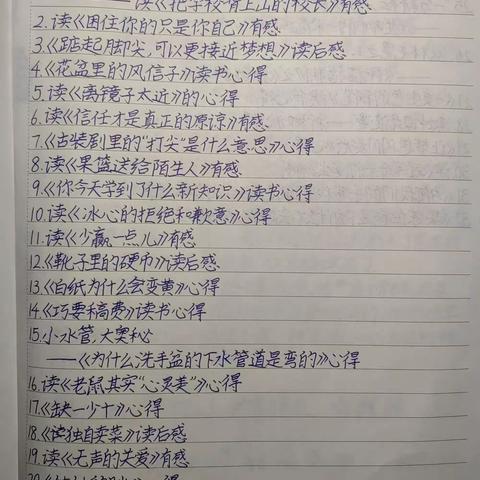 ——读《把学校背上山的校长》有感
2.读《困住你的只是你自己》有感
3.《踮起脚尖,可以更接近梦想》读后感
4.《花盆里的风信子》读书心得
5.读《离镜子太近》的心得
6.读《信任才是真正的原谅》有感
7.《古装剧里的"打尖"是什么意思》心得
8.读《果篮送给陌生人》有感
9.《你今天学到了什么新知识》读书心得
10.读《冰心的拒绝和歉意》心得
11.读《少赢一点儿》有感
12.《靴子里的硬币》读后感
13.《白纸为什么会变黄》心得
14.《巧要稿费》读书心得
15.小水管,大奥秘
——《为什么洗手盆的下水管道是弯的》心得
16.读《老鼠其实"心灵美"》心得
17.《缺一少十》心得
18.《独自卖菜》读后感
19.读《无声的关爱》有感